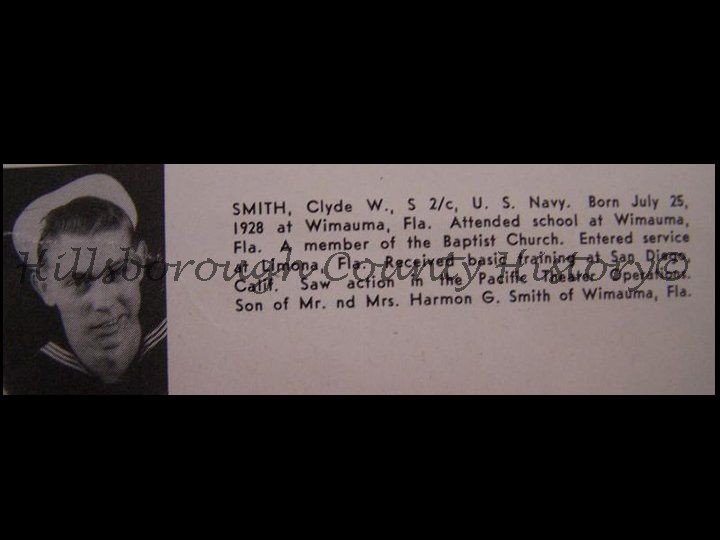 SMITH, Clyde W., S 2/c, U. S. Navy. Born July 25,
1928 at Wimauma, Fla. Attended school at Wimauma,
Fla. A member of the Baptist Church. Entered service
at Limona, Fla. Received basic training at San Diego,
Calif. Saw action in the Pacific Theater Operations.
Son of Mr. nd Mrs. Harmon G. Smith of Wimauma, Fla.
Hillsborough County History©